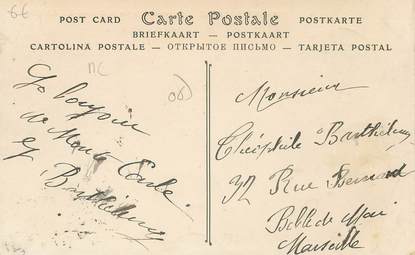 6€
POST CARD Carte Postale POSTKARTE
BRIEFKAART — POSTKAART
CARTOLINA POSTALE — ОТКРЫТОЕ ПИСЬМО — TARJETA POSTAL
MC
06
bonjour
de Monte Carlo
Barthélemy
Monsieur
Théophile Barthélemy
32 Rue Bernard
Belle de Mai
Marseille